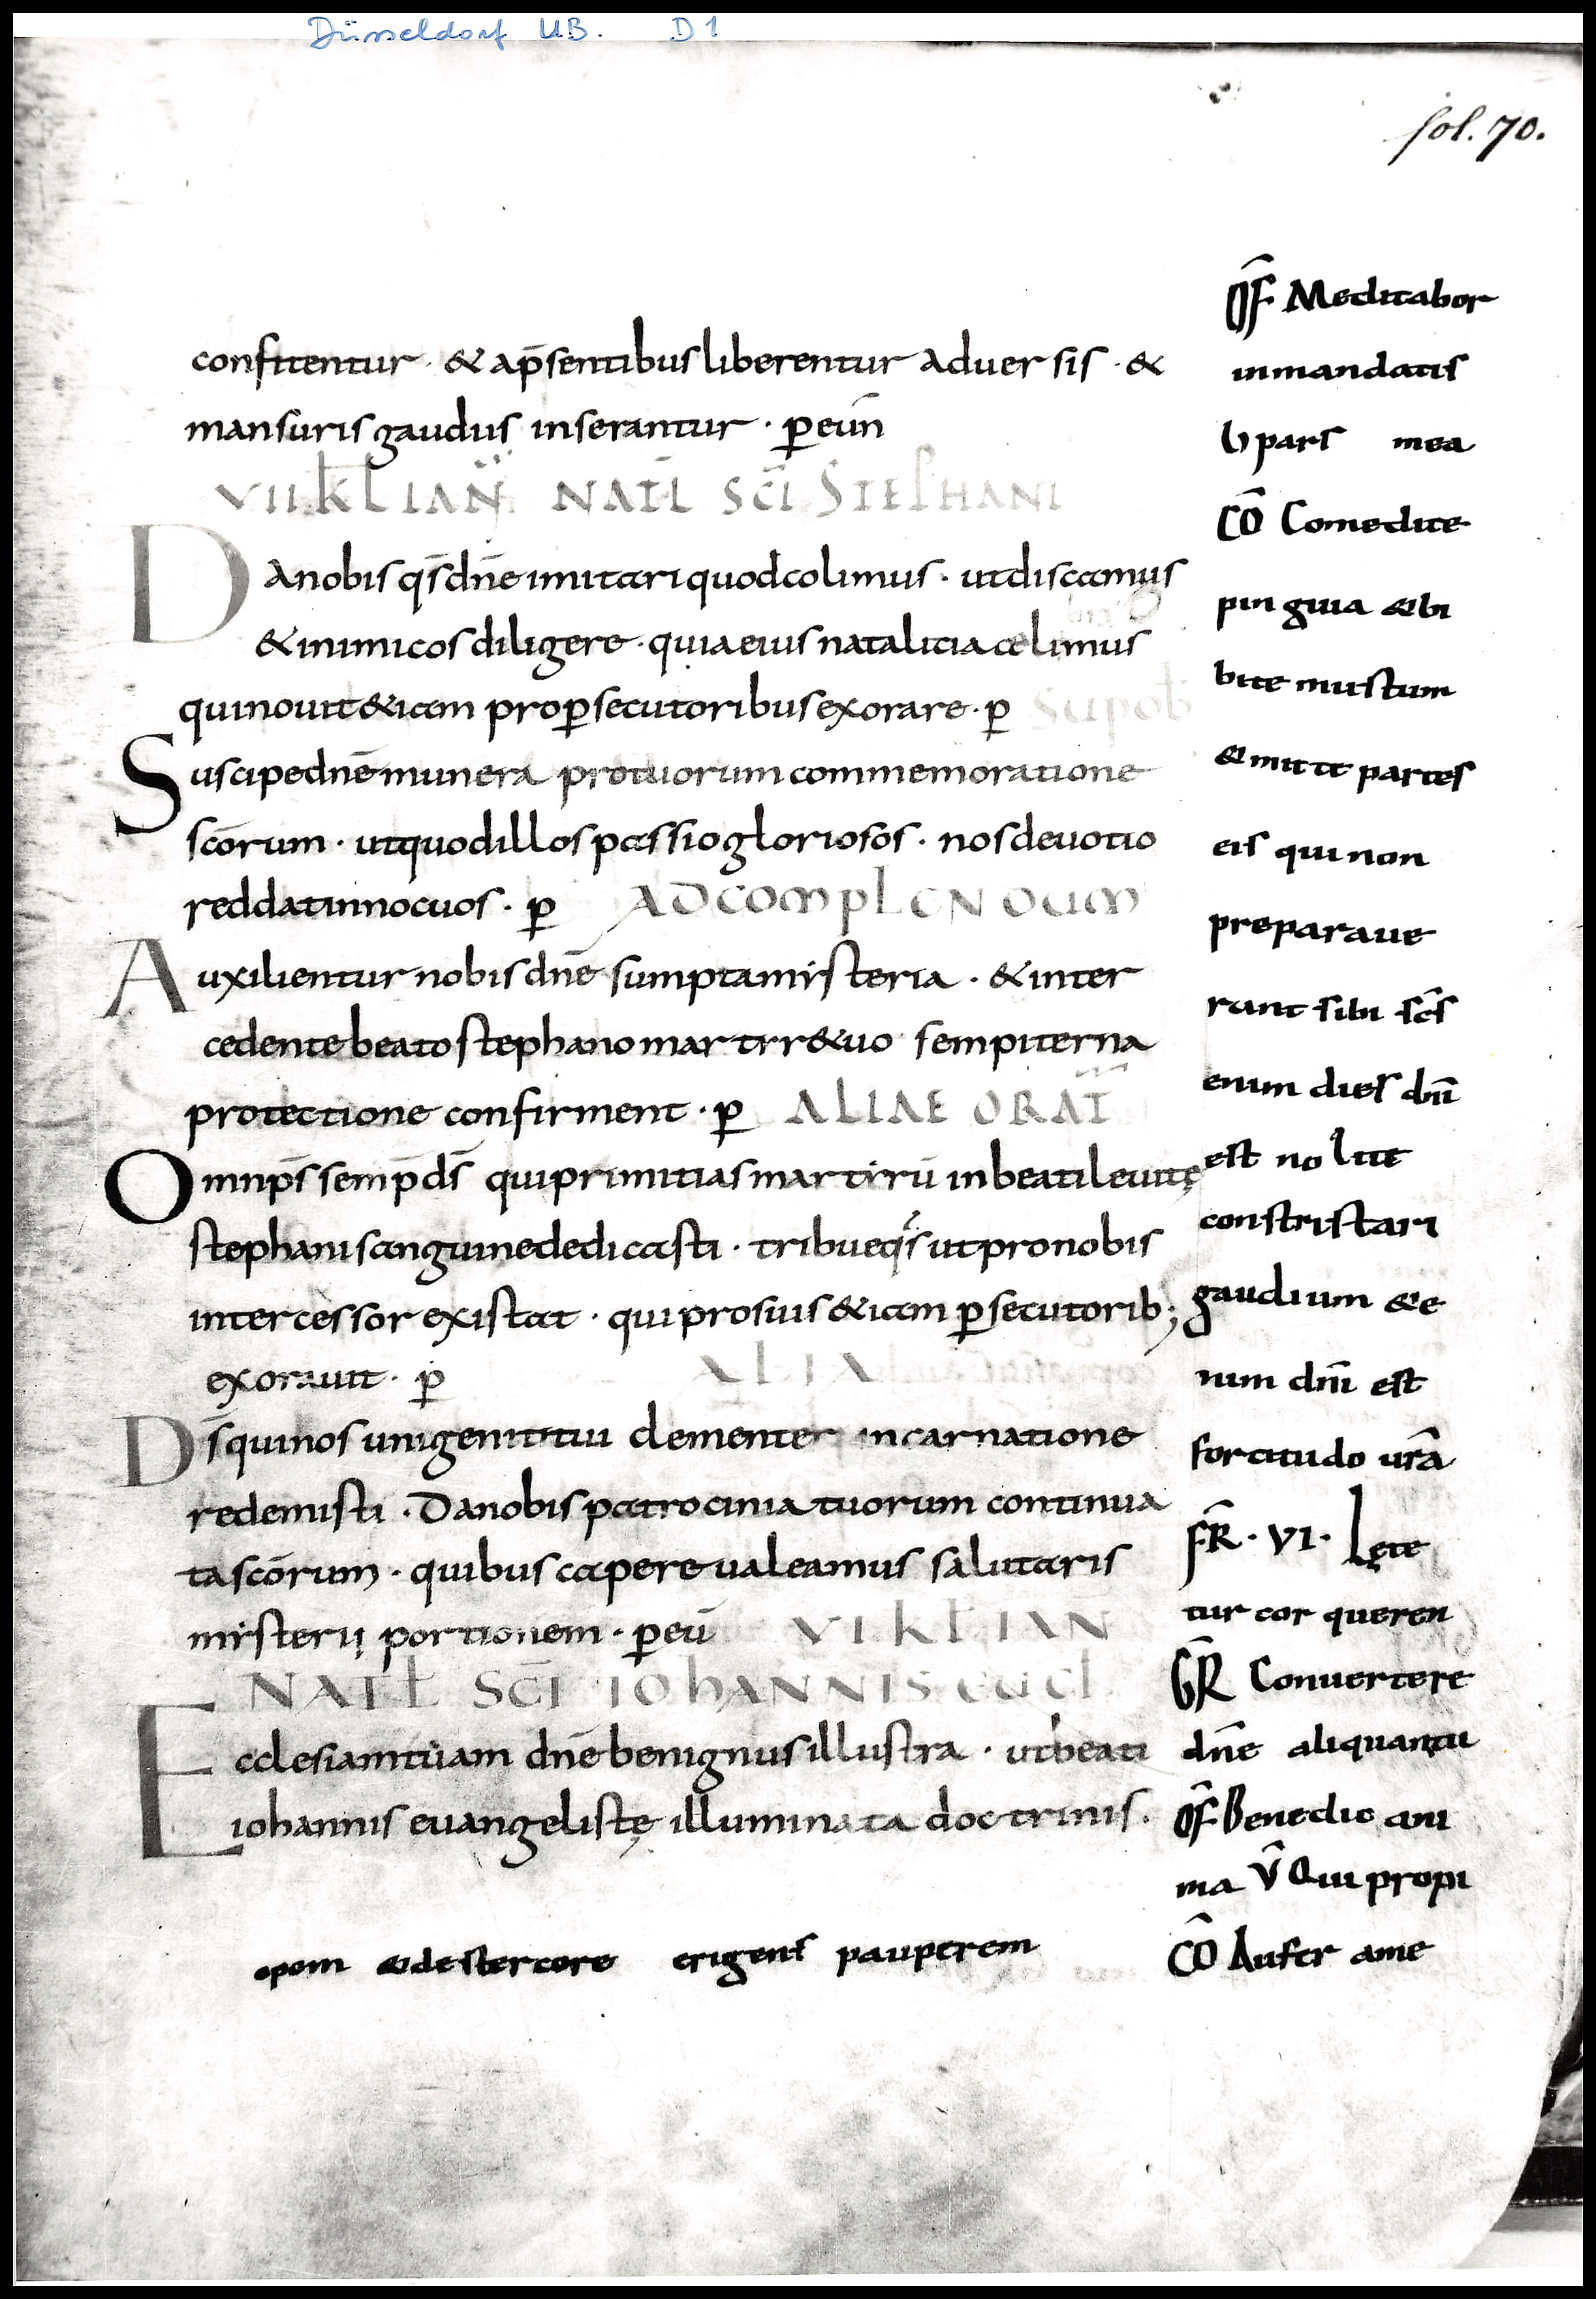 Düsseldorf UB. D1
fol. 70.
confitentur · & ap̄sentibus liberentur aduersis · &
mansuris gaudiis inserantur · p̲ eun̄
VII KL IAN NATL SCI STEPHANI
Da nobis qs̄ dn̄e imitari quod colimus · ut discamus
& inimicos diligere · quia eius natalicia celimus
qui nouit &iam pro p̲secutoribus exorare · p̲
Suscipe dn̄e munera pro tuorum commemoratione
scōrum · ut quod illos passio gloriosos · nos deuotio
reddat innocuos · p̲ AD COMPLENDUM
Auxilientur nobis dn̄e sumpta misteria · & inter
cedente beato stephano martyr& uo sempiterna
protectione confirment · p̲ ALIAE ORAT̄
Omnip̄s semp̲ ds̄ qui primitias martirū in beati leuitę
stephani sanguine dedicasti · tribue qs̄ ut pro nobis
intercessor existat · qui pro suis &iam p̲secutorib;
exorauit · p̲ ALIA
Ds̄ qui nos unigeniti tui clementer incarnatione
redemisti · Da nobis patrocinia tuorum continua
ta scōrum · quibus capere ualeamus salutaris
misterii portionem · p̲ eū VI KL IAN
NATL SCI IOHANNIS eugl
Ecclesiam tuam dn̄e benignus illustra · ut beati
iohannis euangelistę illuminata doctrinis ·
opem & de stercore erigens pauperem
OF̄ Meditabor
in mandatis
pars mea
CŌ Comedite
pinguia & bi
bite mustum
& mitte partes
eis qui non
preparaue
runt sibi sc̄s
enim dies dnī
est nolite
constristari
gaudium &e
nim dnī est
fortitudo urā
FR̄ · VI · Lęte
tur cor queren
GR̄ Conuertere
dn̄e aliquantu
OF̄ Benedic ani
ma V̄ Qui propi
CŌ Aufer a me